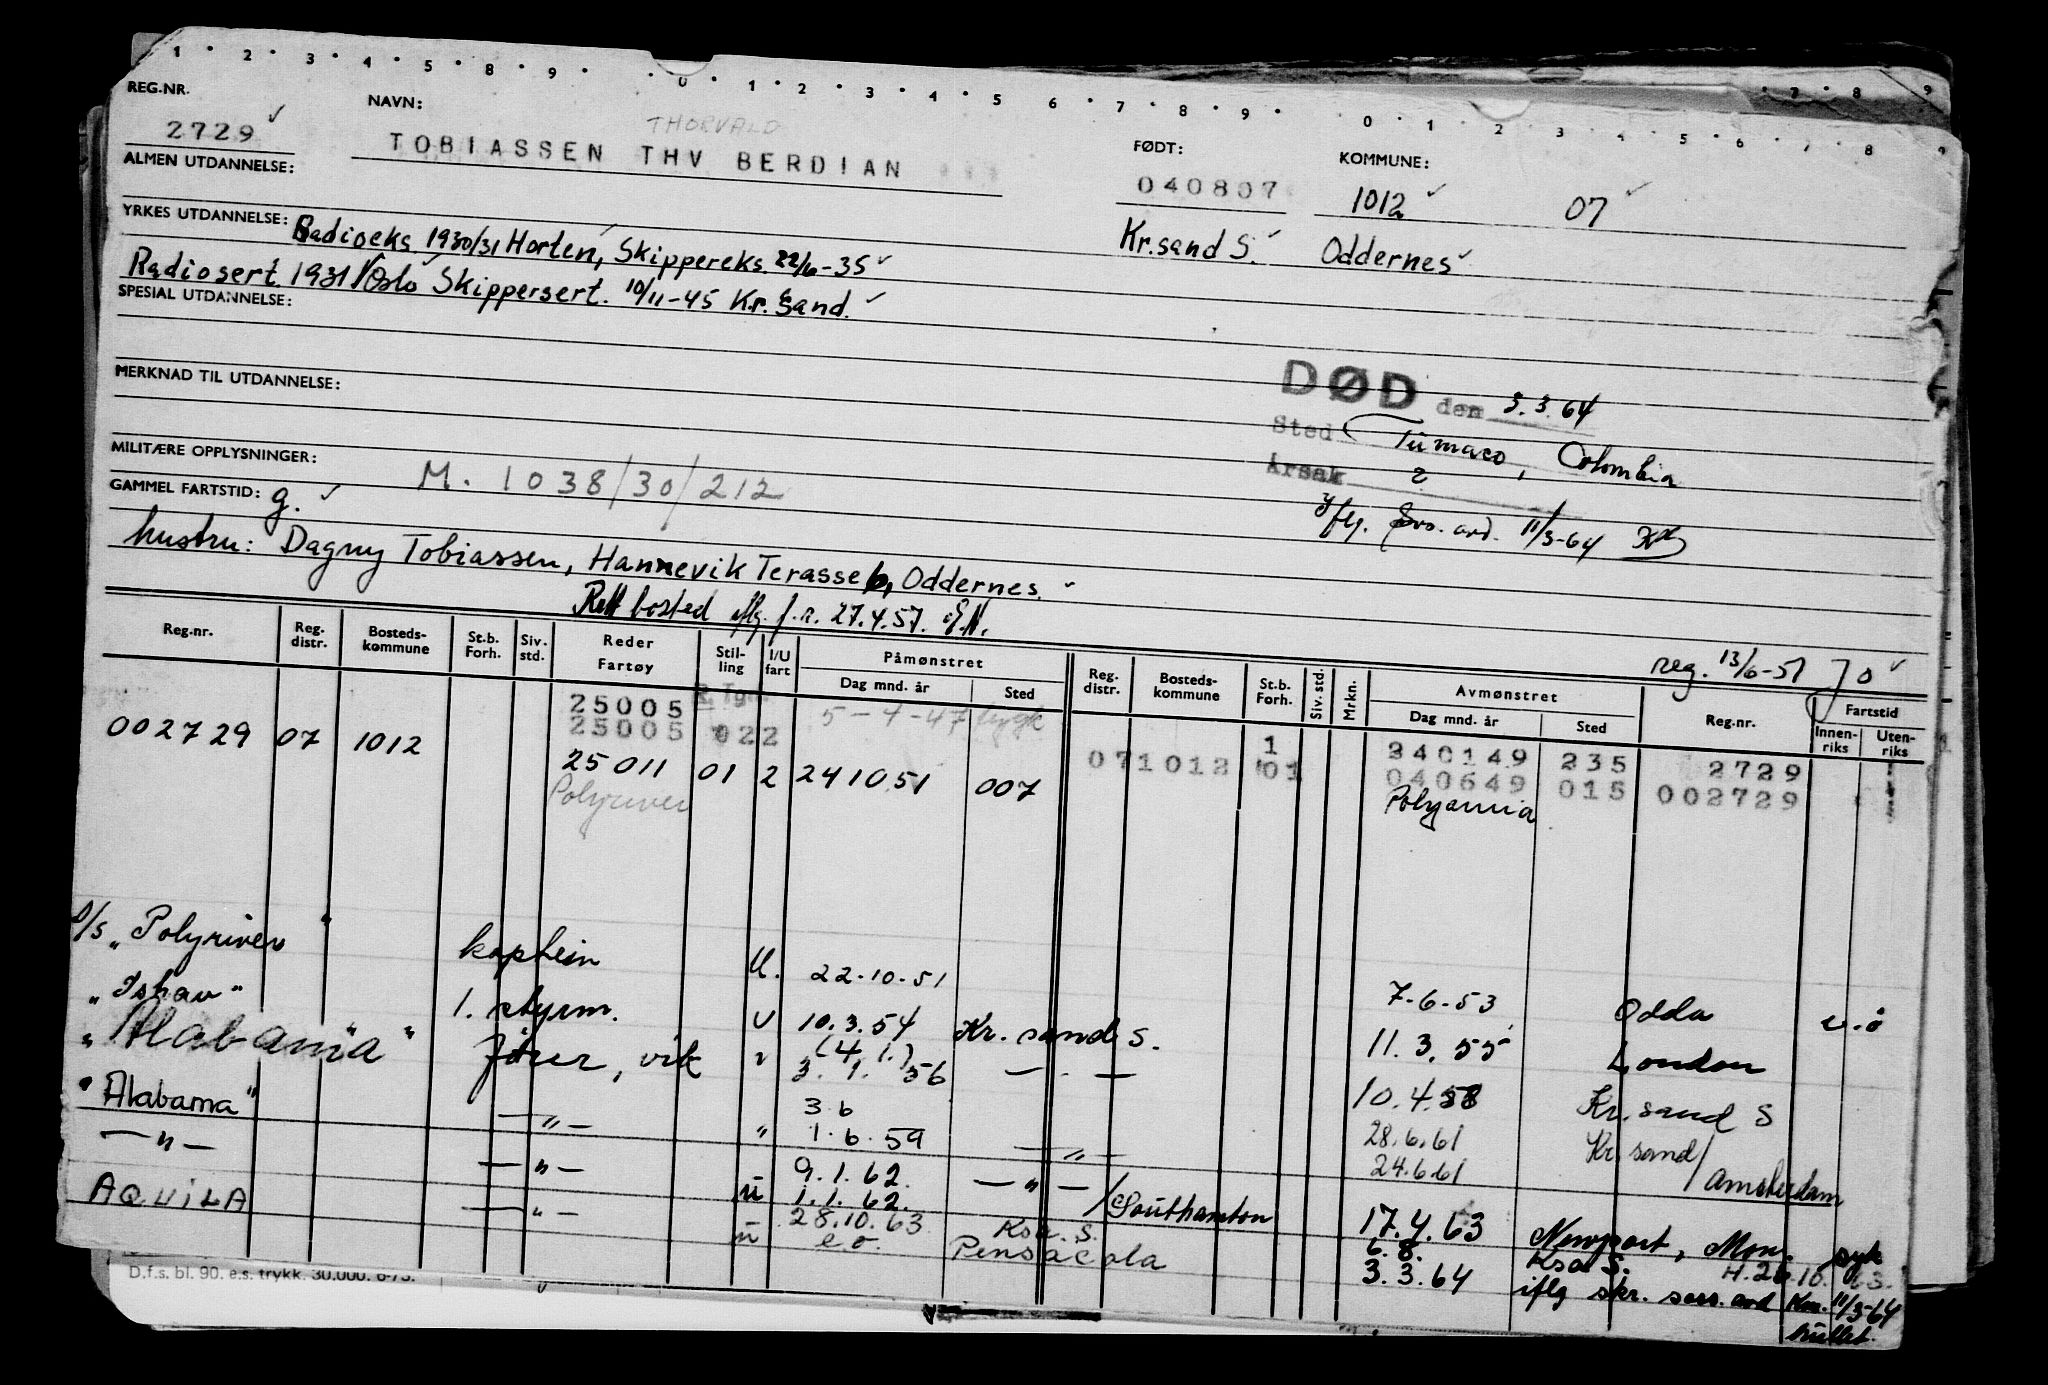 1 2 3 4 5 8 9 0 1 2 3 4 5 6 7 8 9 0 1 2 3 4 5 6 7 8 9
REG.NR.
2729
NAVN:
THORVALD
TOBIASSEN THV BERDIAN
FØDT:
040807
Kr.sand S.
KOMMUNE:
1012 07
Oddernes
ALMEN UTDANNELSE:
YRKES UTDANNELSE: Radioeks. 1930/31 Horten, Skippereks. 22/6-35
Radiosert. 1931 Oslo Skippersert. 10/11-45 Kr.Sand.
SPESIAL UTDANNELSE:
MERKNAD TIL UTDANNELSE:
DØD den 3.3.64
Sted Tumaco, Colombia
Årsak ?
iflg. 11/3-64
MILITÆRE OPPLYSNINGER:
M. 1038/30/212
GAMMEL FARTSTID: g.
hustru: Dagny Tobiassen, Hannevik Terasse 6, Oddernes.
Rett bosted iflg. f.r. 27.4.57. E.N.
reg. 13/6-51 Jo
Reg.nr. Reg. distr. Bosteds-kommune St.b. Forh. Siv. std. Reder Fartøy Stil-ling I/U fart Påmønstret Dag mnd. år Sted Reg. distr. Bosteds-kommune St.b. Forh. Siv. std. Mrkn. Avmønstret Dag mnd. år Sted Reg.nr. Fartstid Innen-riks Uten-riks
25005 R.Tgr. 5-4-47 1 240149 235 2729
002729 07 1012 25005 022 071012 01 040649 015 002729
25011 01 2 241051 007 Polyannia
Polyriver
D/s "Polyriver" kaptein U. 22.10.51 7-6-53 Odda
"Ishav" 1. styrm. U 10.3.54 Kr. sand S. 11.3.55 London
"Alabama" fører, vik (4.1.)
3.1.56 10.4.58 Kr. sand S
"Alabama" — " — " 3.6
1.6.59 — " — 28.6.61 Kr. sand/
— " — — " — 9.1.62. — " — / 24.6.61 / Amsterdam
1.1.62. Southamton 17.4.63 Newport, Mon. syk
AQUILA — " — 28.10.63 Ksa. S. 6.8. Ksa S. H.26.10.63.
e.o. Pensacola 3.3.64 iflg skr. sess. avd Ksa. 11/3-64
D.f.s. bl. 90. e.s. trykk. 30.000. 6-73.